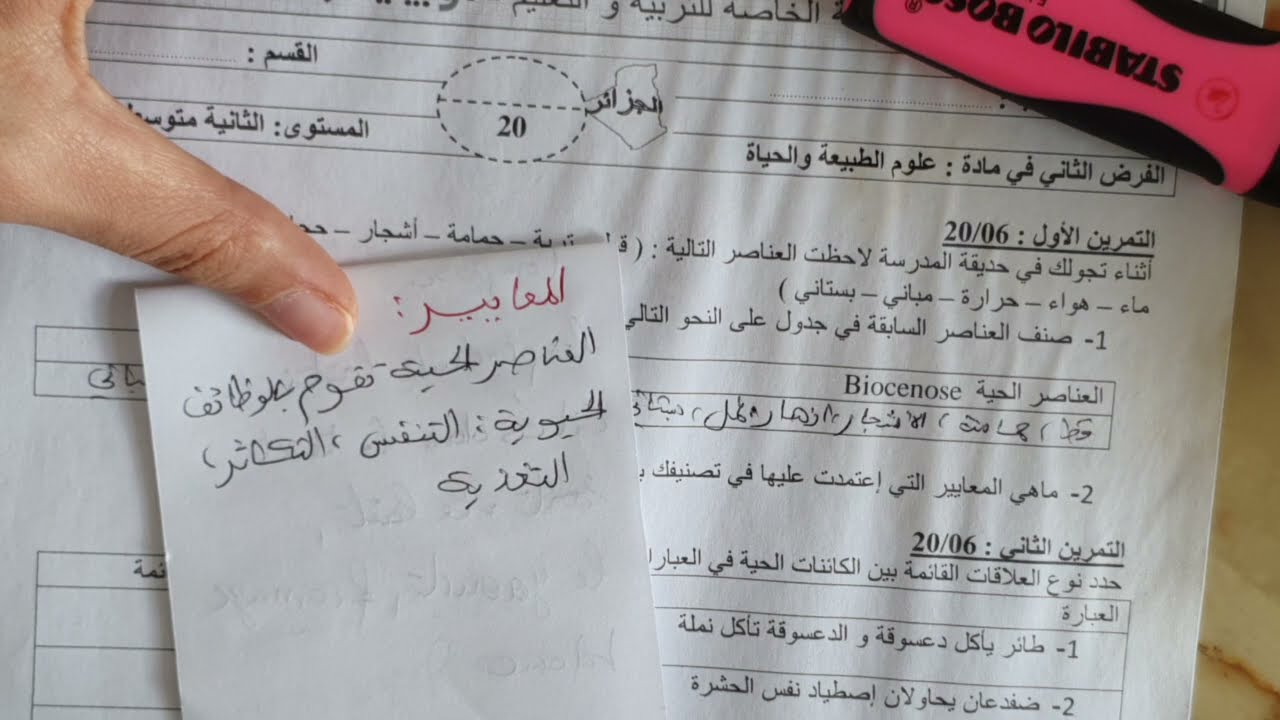 الخاصة للتربية و التعليم
STABILO BOSS
القسم :
الجزائر
20
المستوى: الثانية متوسط
الفرض الثاني في مادة : علوم الطبيعة والحياة
التمرين الأول : 20/06
أثناء تجولك في حديقة المدرسة لاحظت العناصر التالية : ( تربة – حمامة – أشجار –
ماء – هواء – حرارة – مباني – بستاني )
1- صنف العناصر السابقة في جدول على النحو التالي
العناصر الحية Biocenose
قط، حمامة، الأشجار، ازهار، نمل،
2- ماهي المعايير التي إعتمدت عليها في تصنيفك
التمرين الثاني : 20/06
حدد نوع العلاقات القائمة بين الكائنات الحية في
العبارة
1- طائر يأكل دعسوقة و الدعسوقة تأكل نملة
2- ضفدعان يحاولان إصطياد نفس الحشرة
المعايير:
العناصر الحية تقوم بالوظائف
الحيوية: التنفس، التكاثر،
التغذية